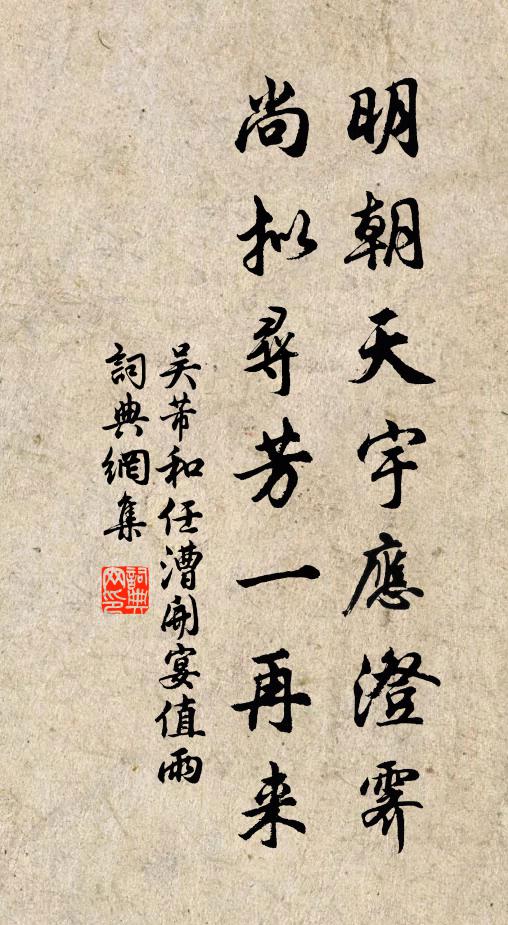 明朝天宇應澄霽
尚拟尋芳一再来
吴芾和任漕開宴值雨
詞典網集
詞典網印